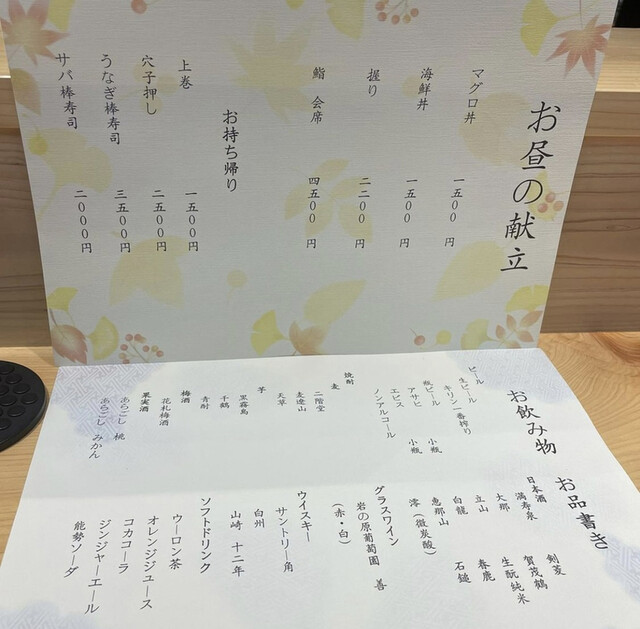 お昼の献立
マグロ丼 一五〇〇円
海鮮丼 一五〇〇円
握り 二二〇〇円
鮨 会席 四五〇〇円
お持ち帰り
上巻 一五〇〇円
穴子押し 二五〇〇円
うなぎ棒寿司 三五〇〇円
サバ棒寿司 二〇〇〇円
お飲み物 お品書き
ビール
生ビール
キリン一番搾り
瓶ビール 小瓶
アサヒ
エビス 小瓶
ノンアルコール
焼酎
麦
二階堂
麦遊山
天草
芋
黒霧島
千鶴
青酎
梅酒
花札梅酒
果実酒
あらごし 桃
あらごし みかん
日本酒 剣菱
満寿泉 賀茂鶴
大那 生酛純米
立山 春鹿
白龍 石鎚
恵那山
澪(微炭酸)
グラスワイン
岩の原葡萄園 善
(赤・白)
ウイスキー
サントリー角
白州
山崎 十二年
ソフトドリンク
ウーロン茶
オレンジジュース
コカコーラ
ジンジャーエール
能勢ソーダ